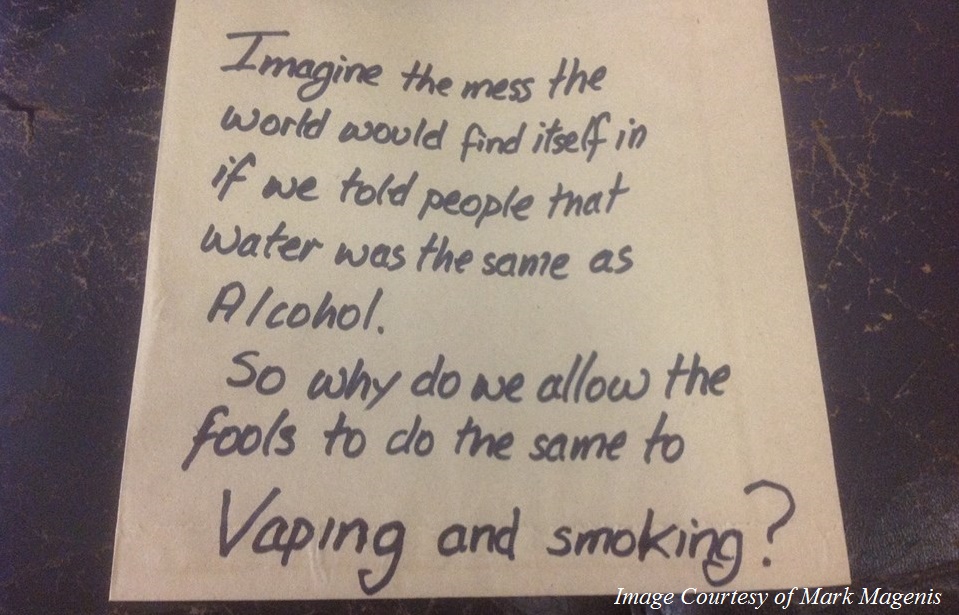 Imagine the mess the
world would find itself in
if we told people that
water was the same as
Alcohol.
So why do we allow the
fools to do the same to
Vaping and smoking?
Image Courtesy of Mark Magenis